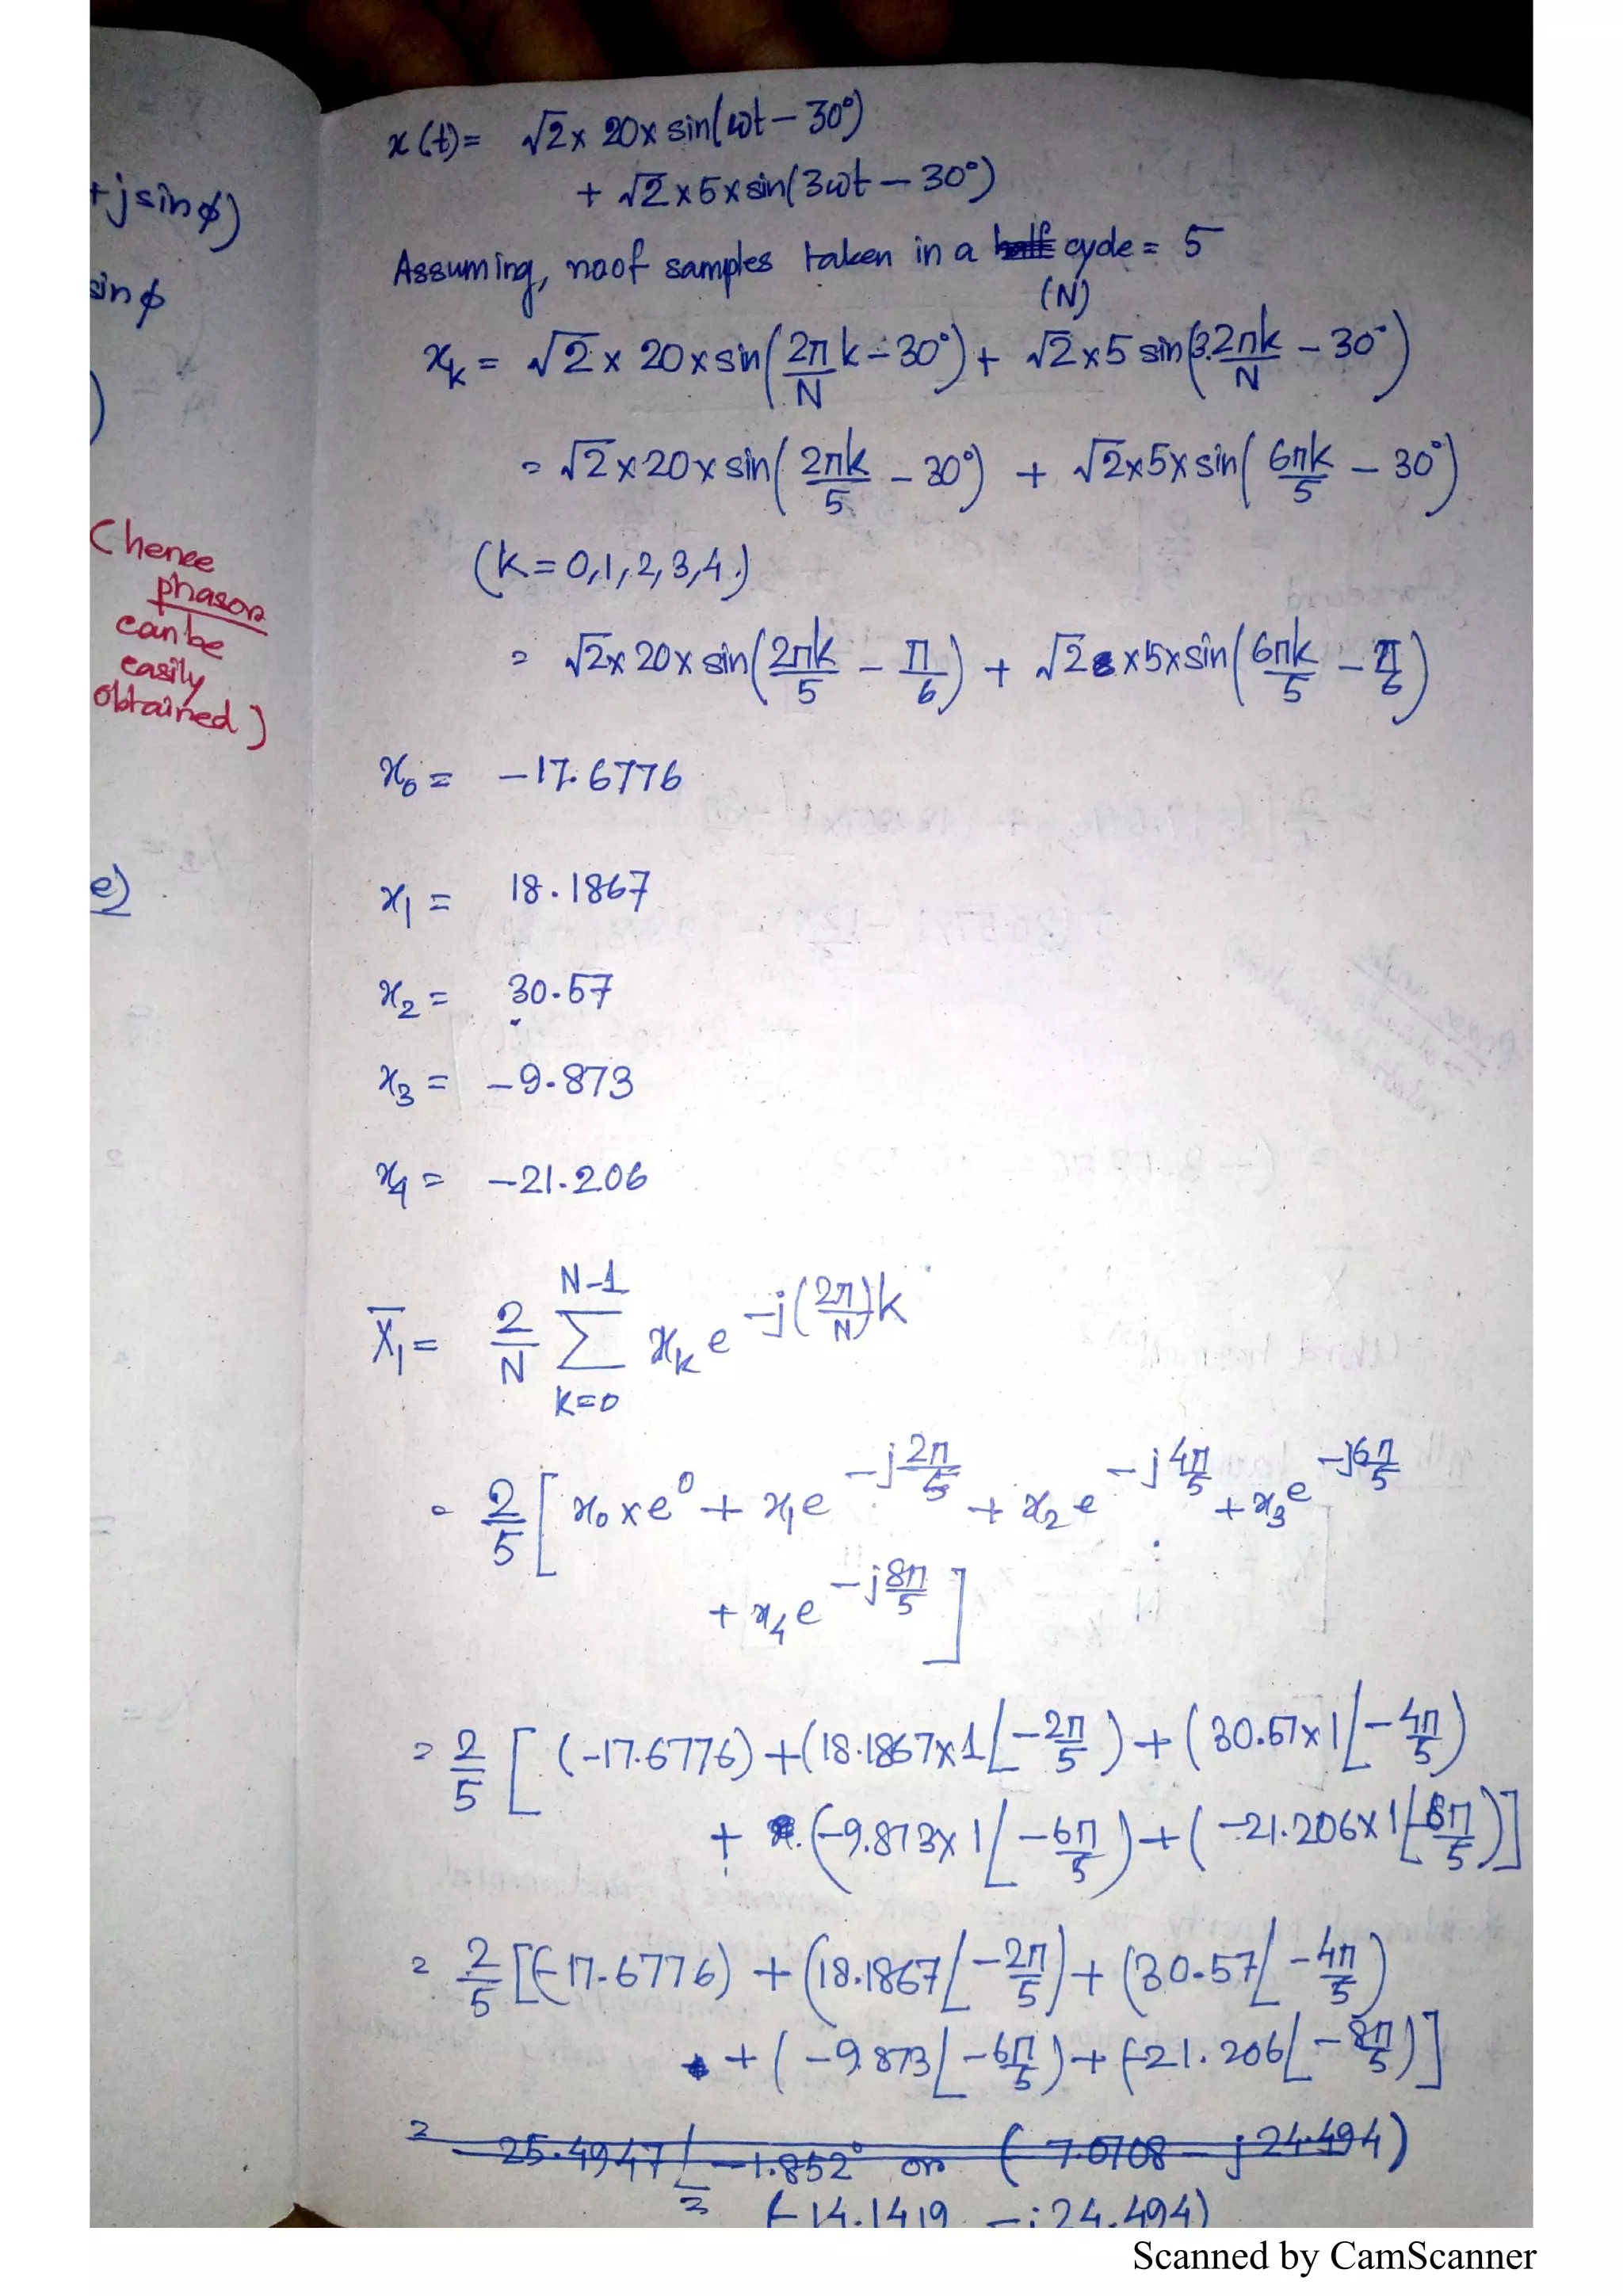 +jsinφ)
sinφ
)
(hence
phasor
can be
easily
obtained)
e)
x(t)= √2× 20× sin(ωt – 30°)
+ √2×5×sin(3ωt – 30°)
Assuming, no of samples taken in a half cycle = 5
(N)
x_k = √2 × 20×sin(2π/N k – 30°) + √2×5 sin(3.2πk/N – 30°)
= √2×20×sin(2πk/5 – 30°) + √2×5×sin(6πk/5 – 30°)
(k=0,1,2,3,4.)
= √2×20×sin(2πk/5 – π/6) + √2 ×5×sin(6πk/5 – π/6)
x₀ = –17.6776
x₁ = 18.1867
x₂ = 30.57
x₃ = –9.873
x₄ = –21.206
X̄₁ = 2/N Σ_{k=0}^{N-1} x_k e^{–j(2π/N)k}
= 2/5 [x₀×e⁰ + x₁e^{–j2π/5} + x₂e^{–j4π/5} + x₃e^{–j6π/5}
+ x₄e^{–j8π/5}]
= 2/5 [(-17.6776)+(18.1867×1∠–2π/5)+(30.57×1∠–4π/5)
+ (-9.873×1∠–6π/5)+(–21.206×1∠–8π/5)]
= 2/5 [(-17.6776) + (18.1867∠–2π/5)+(30.57∠–4π/5)
+(–9.873∠–6π/5)+(-21.206∠–8π/5)]
= 25.4947∠–1.852° or (7.0708 – j24.494)
= (-14.1419 – j24.494)
Scanned by CamScanner